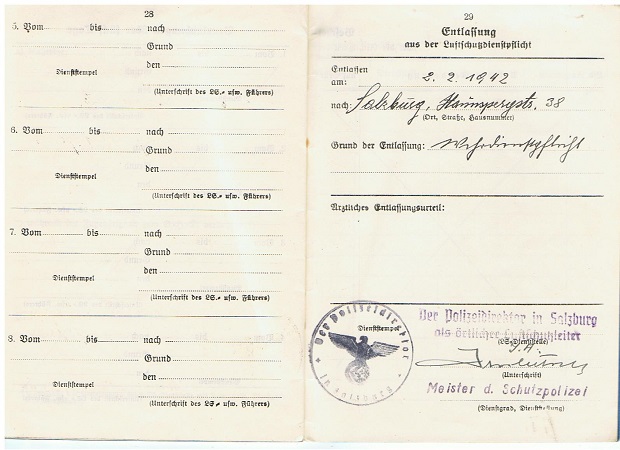 28
5. Vom bis nach
Grund
den
Dienststempel
(Unterschrift des LS.- usw. Führers)
6. Vom bis nach
Grund
den
Dienststempel
(Unterschrift des LS.- usw. Führers)
7. Vom bis nach
Grund
den
Dienststempel
(Unterschrift des LS.- usw. Führers)
8. Vom bis nach
Grund
den
Dienststempel
(Unterschrift des LS.- usw. Führers)
29
Entlassung
aus der Luftschutzdienstpflicht
Entlassen
am: 2. 2. 1942
nach: Salzburg, Haunspergstr. 38
(Ort, Straße, Hausnummer)
Grund der Entlassung: Wehrdienstpflicht
Ärztliches Entlassungsurteil:
Der Polizeidirektor in Salzburg
als örtlicher Luftschutzleiter
Dienststempel
(LS-Dienststelle)
I.A.
(Unterschrift)
Meister d. Schutzpolizei
(Dienstgrad, Dienststellung)
Der Polizeidirektor
in Salzburg